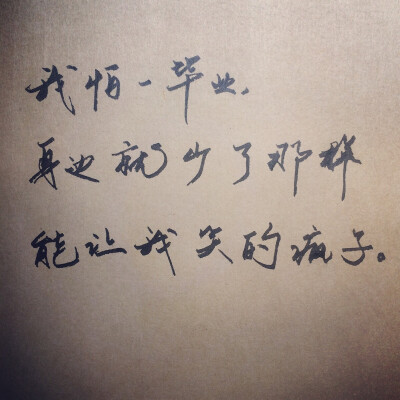 我怕一毕业,
身边就少了那群
能让我笑的疯子。